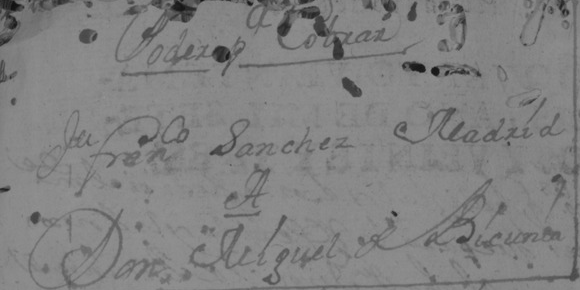 Poder p Cobrar
Ju fran co Sanchez Madrid
A
Don Miguel d Bicunia